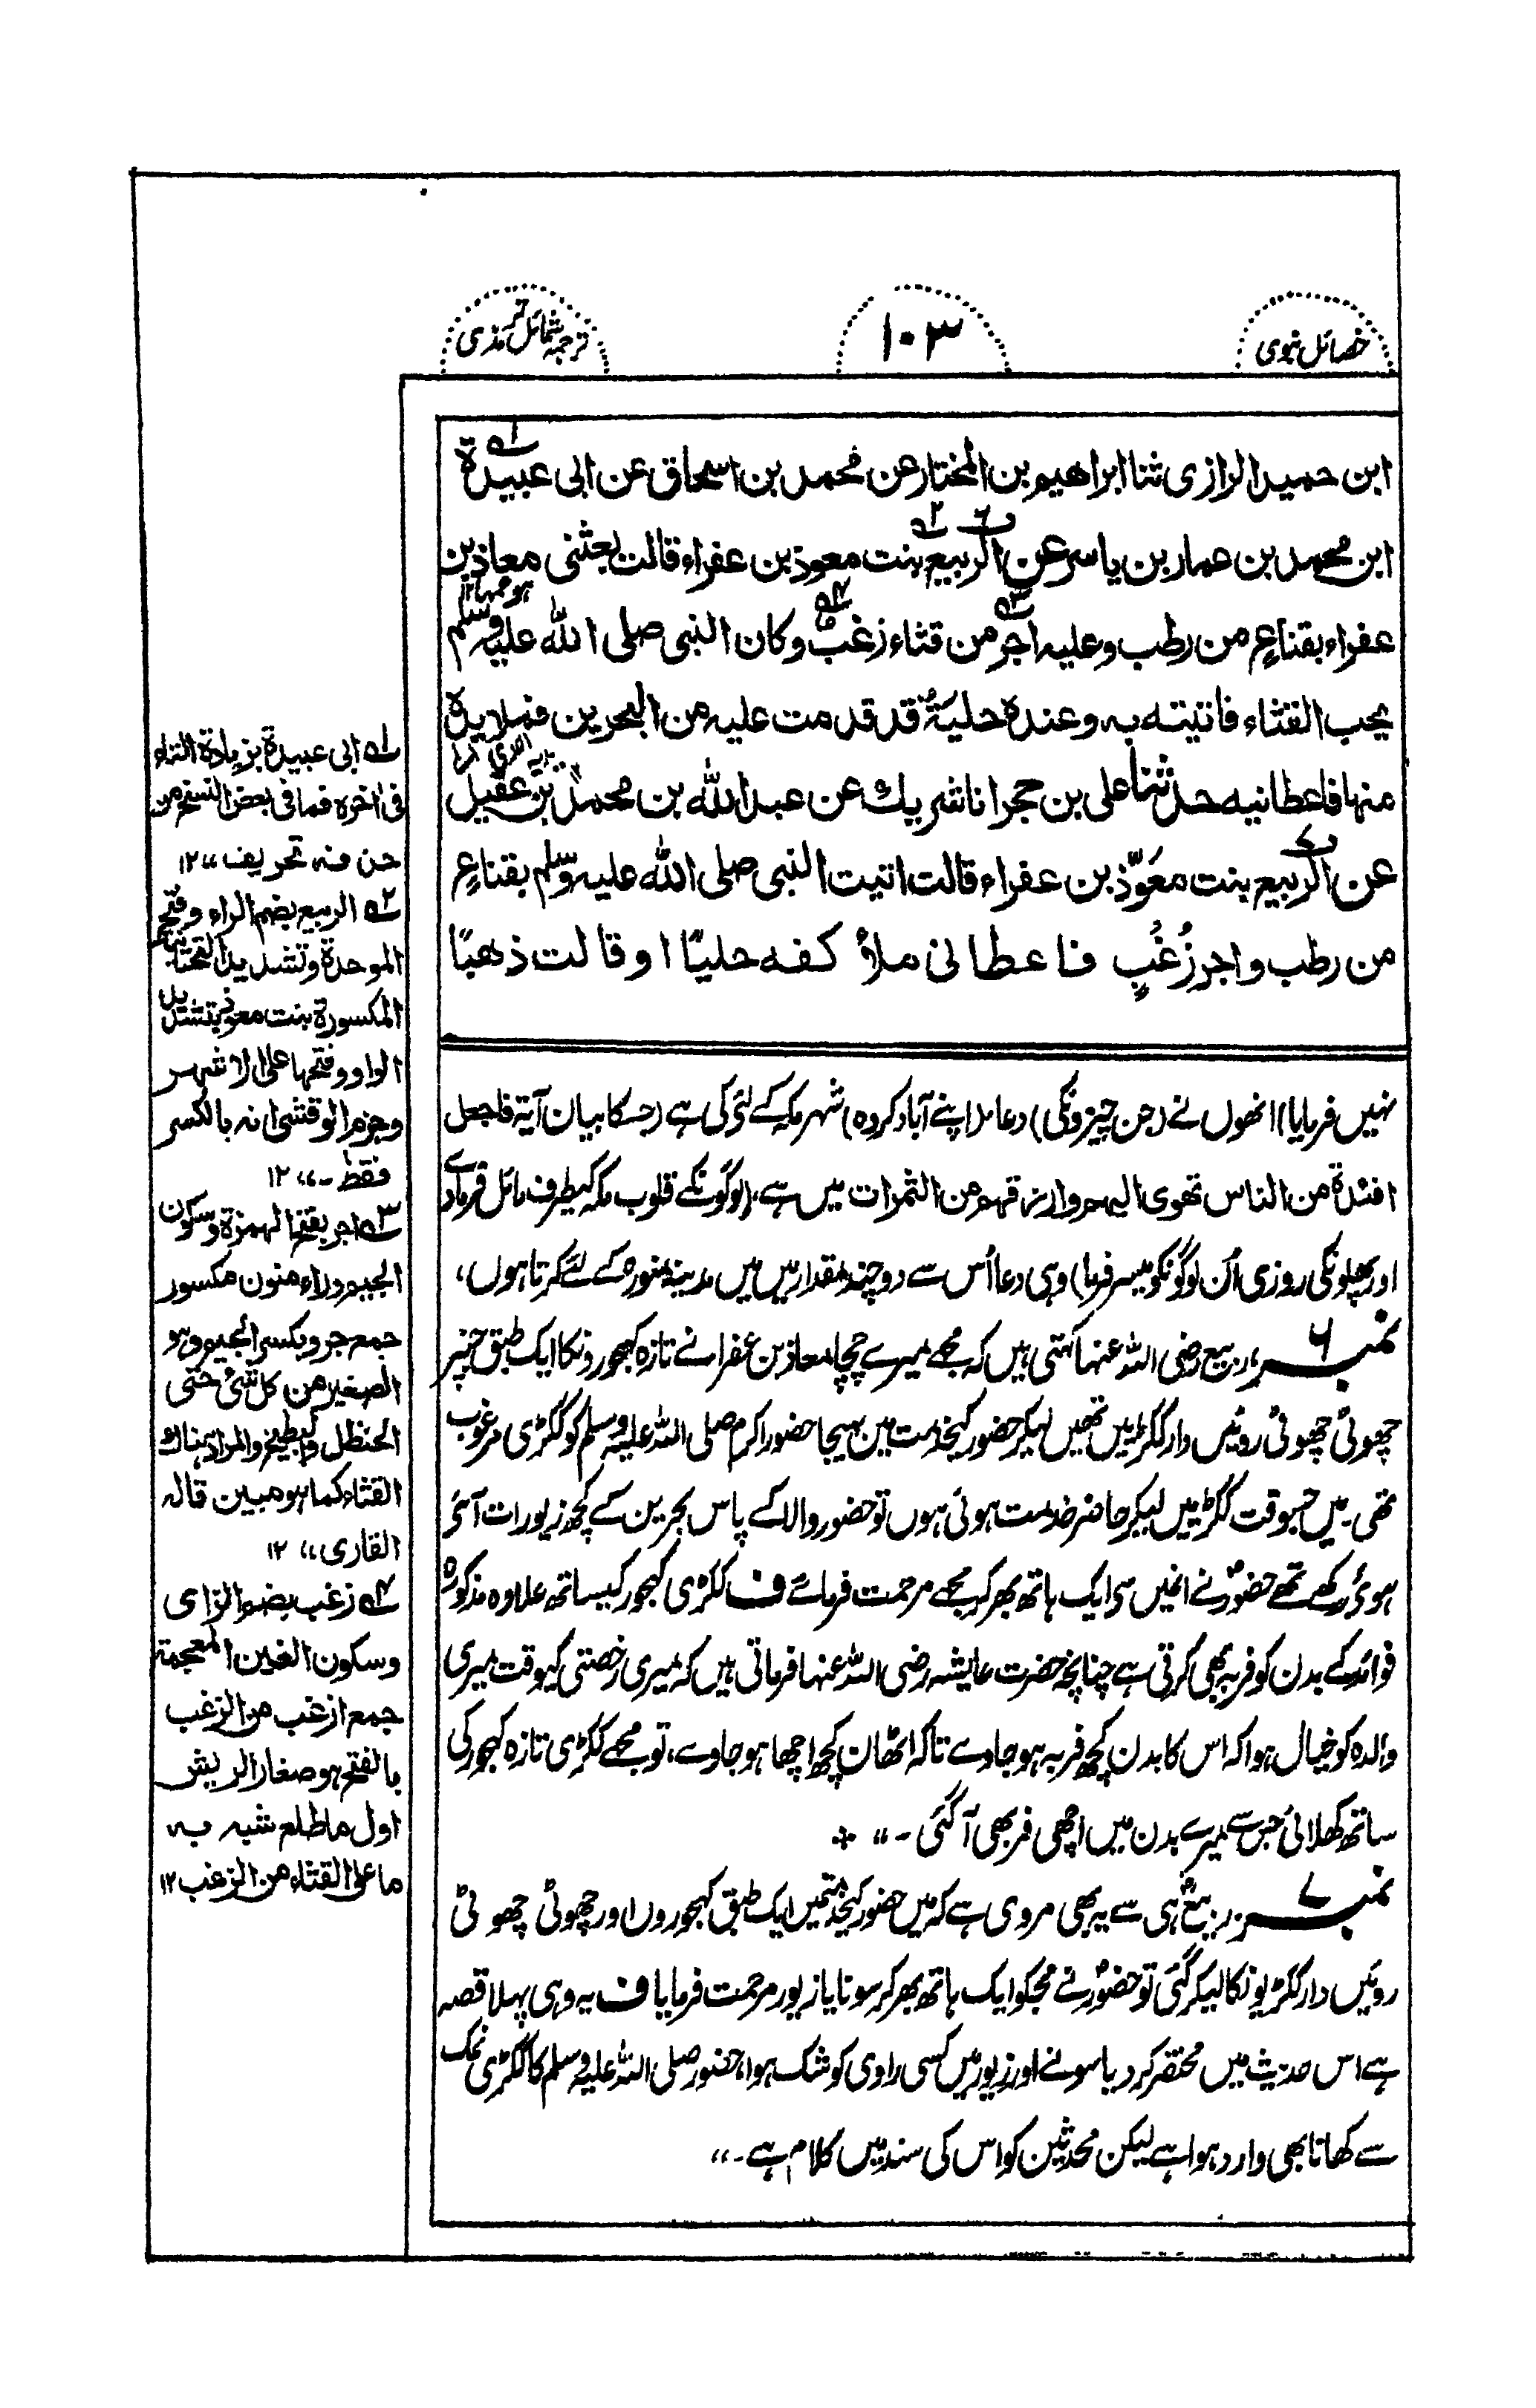 خصائل نبوی
۱۰۳
ترجمہ شمائل ترمذی
ابن حمید الرازی ثنا ابراهیم بن المختار عن محمد بن اسحاق عن ابی عبیدة
ابن محمد بن عمار بن یاسر عن الربیع بنت معوذ بن عفراء قالت بعثنی معاذ بن
عفراء بقناعٍ من رطب وعلیه اجر من قثاء زغب وکان النبی صلی الله علیه وسلم
یحب القثاء فاتیته به وعنده حلیة قد قدمت علیه من البحرین فملأ یده
منها فاعطانیه حدثنا علی بن حجر انا شریك عن عبد الله بن محمد بن عقیل
عن الربیع بنت معوّذ بن عفراء قالت اتیت النبی صلی الله علیه وسلم بقناعٍ
من رطب واجر زُغُبٍ فاعطانی ملأ کفه حلیًا او قالت ذهبًا
نہیں فرمایا) انھوں نے (جن چیزونکی) دعا (اپنے آباد کردہ) شہر مکہ کے لئی کی ہے (جسکا بیان آیۃ فاجعل
افئدة من الناس تهوی الیهم وارزقهم من الثمرات میں ہے، (لوگونکے قلوب مکہ کیطرف مائل فرمادے
اور پھلونکی روزی اُن لوگونکو میسر فرما) وہی دعا اُس سے دوچند مقدار میں میں مدینہ منورہ کے لئے کرتا ہوں،
نمبر ۶ ربیع رضی اللہ عنہا کہتی ہیں کہ مجھے میرے چچا معاذ بن عفرا نے تازہ کھجورونکا ایک طبق جنپر
چھوٹی چھوٹی روئیں دار ککڑیں تھیں لیکر حضور کیخدمت میں بھیجا حضور اکرم صلی اللہ علیہ وسلم کو ککڑی مرغوب
تھی۔ میں جسوقت ککڑییں لیکر حاضر خدمت ہوئی ہوں تو حضور والا کے پاس بحرین کے کچھ زیورات آئے
ہوئے رکھے تھے حضورؐ نے انھیں سی ایک ہاتھ بھر کر مجھے مرحمت فرمائے ف ککڑی کھجور کیساتھ علاوہ مذکورہ
فوائد کے بدن کو فربہ بھی کرتی ہے چنانچہ حضرت عایشہ رضی اللہ عنہا فرماتی ہیں کہ میری رخصتی کیوقت میری
والدہ کو خیال ہوا کہ اس کا بدن کچھ فربہ ہو جاوے تاکہ اٹھان کچھ اچھا ہو جاوے، تو مجھے ککڑی تازہ کھجور کی
ساتھ کھلائی جس سے میرے بدن میں اچھی فربھی آ گئی۔ ،،
نمبر ۷ ربیعؓ ہی سے یہ بھی مروی ہے کہ میں حضور کیخدمتمیں ایک طبق کھجوروں اور چھوٹی چھوٹی
روئیں دار ککڑیونکا لیکر گئی تو حضورؐ نے مجکو ایک ہاتھ بھر کر سونا یا زیور مرحمت فرمایا ف یہ وہی پہلا قصہ
ہے اس حدیث میں مختصر کر دیا سونے اور زیور میں کسی راوی کو شک ہوا، حضور صلی اللہ علیہ وسلم کا ککڑی نمک
سے کھانا بھی وارد ہوا ہے لیکن محدثین کو اس کی سند میں کلام ہے۔ ،،
۱ه ابی عبیدة بزیادة التاء
فی اخره فما فی بعض النسخ من
حذفه تحریف ،، ۱۲
۲ه الربیع بضم الراء وفتح
الموحدة وتشدید التحتانیة
المکسورة بنت معوذ بتشدید
الواو وفتحها علی الاشهر
وجزم الوقشی انه بالکسر
فقط۔ ،، ۱۲
۳ه اجر بفتح الهمزة وسکون
الجیم وراء منون مکسور
جمع جرو بکسر الجیم وهو
الصغیر من کل شئ حتی
الحنظل والبطیخ والمراد هناك
القثاء کما هو مبین قاله
القاری ،، ۱۲
۴ه زغب بضم الزای
وسکون الغین المعجمة
جمع ازغب من الزغب
بالفتح هو صغار الریش
اول ما طلع شبه به
ما علی القثاء من الزغب ۱۲